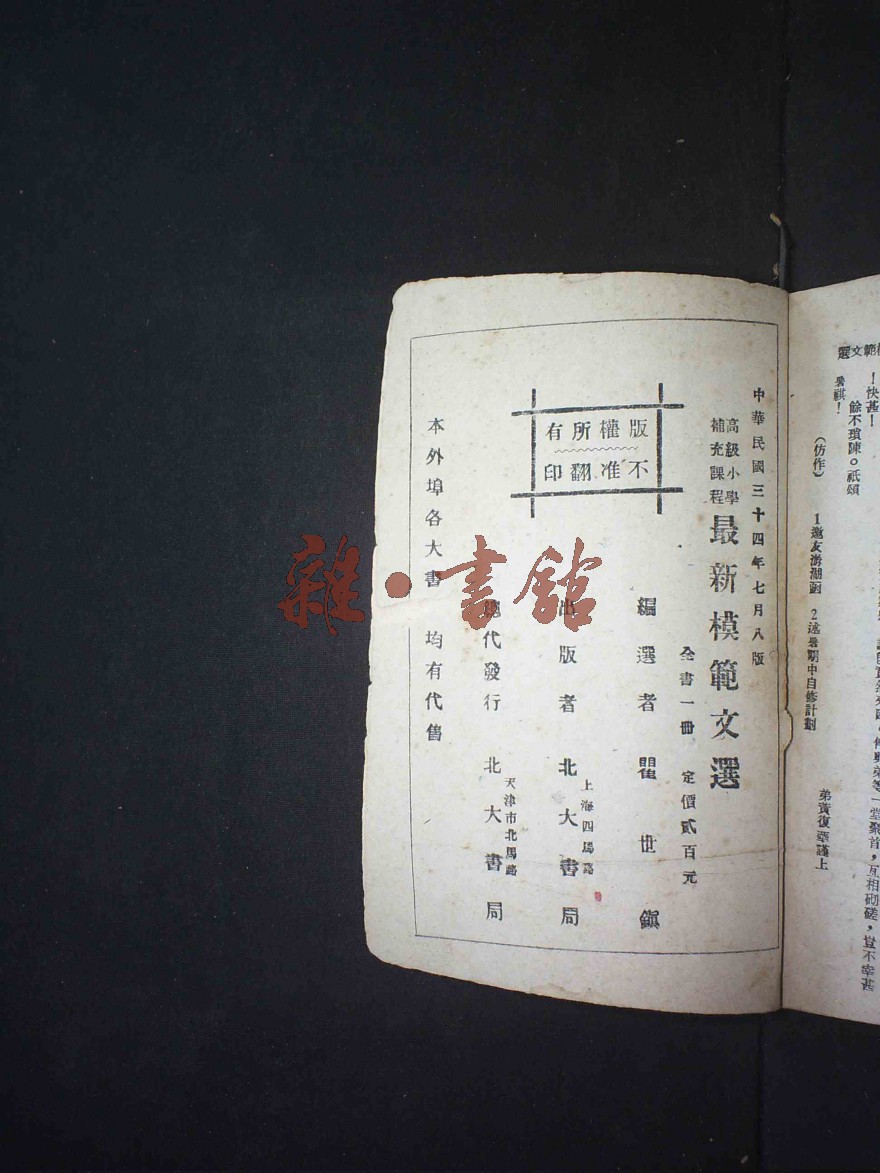 選
！快甚！
餘不瑣陳。祇頌
暑祺！
(仿作)
1邀友游湖函 2述暑期中自修計劃
弟黃復華謹上
互相砌磋，豈不幸甚
中華民國三十四年七月八版
高級小學
補充課程
最新模範文選
全書一冊 定價貳百元
版權所有
不准翻印
編選者 瞿世鎮
上海四馬路
出版者 北大書局
天津市北馬路
總代發行 北大書局
本外埠各大書 均有代售
雜·書館